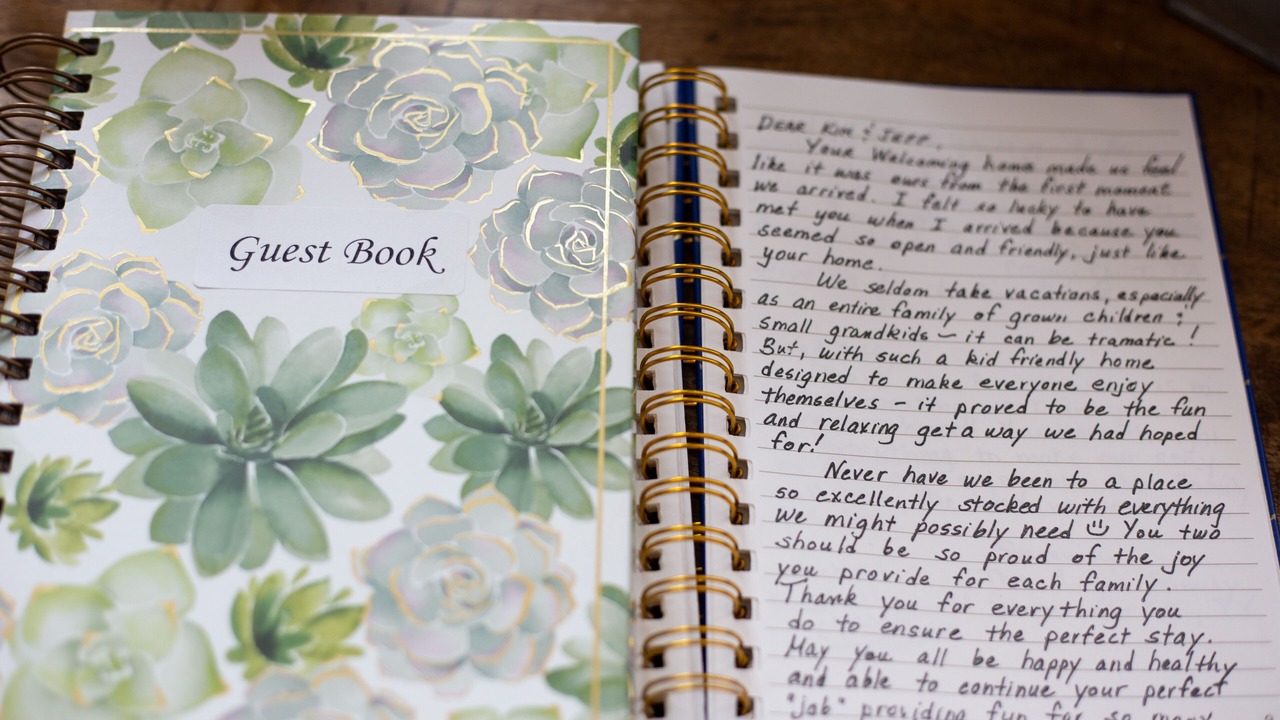 Guest Book
Dear Kim & Jeff,
Your Welcoming home made us feel
like it was ours from the first moment
we arrived. I felt so lucky to have
met you when I arrived because you
seemed so open and friendly, just like
your home.
We seldom take vacations, especially
as an entire family of grown children &
small grandkids – it can be tramatic!
But, with such a kid friendly home
designed to make everyone enjoy
themselves – it proved to be the fun
and relaxing get a way we had hoped
for!
Never have we been to a place
so excellently stocked with everything
we might possibly need ☺ You two
should be so proud of the joy
you provide for each family.
Thank you for everything you
do to ensure the perfect stay.
May you all be happy and healthy
and able to continue your perfect
"job" providing fun for so many